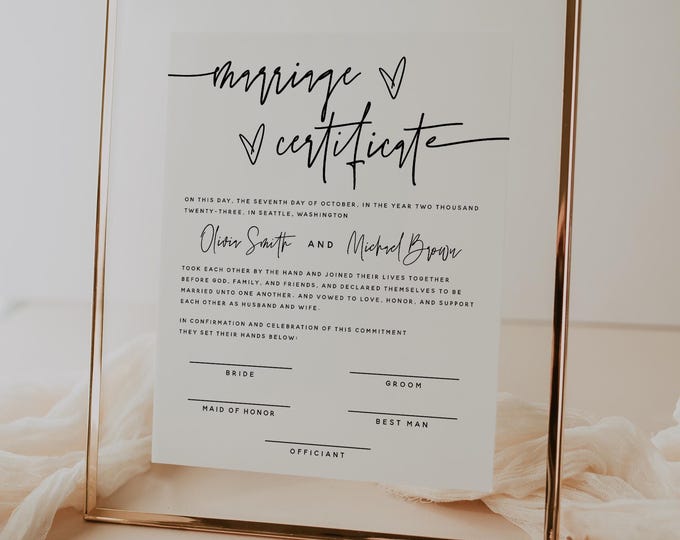 marriage
certificate
ON THIS DAY, THE SEVENTH DAY OF OCTOBER, IN THE YEAR TWO THOUSAND
TWENTY-THREE, IN SEATTLE, WASHINGTON
Olivia Smith AND Michael Brown
TOOK EACH OTHER BY THE HAND AND JOINED THEIR LIVES TOGETHER
BEFORE GOD, FAMILY, AND FRIENDS, AND DECLARED THEMSELVES TO BE
MARRIED UNTO ONE ANOTHER, AND VOWED TO LOVE, HONOR, AND SUPPORT
EACH OTHER AS HUSBAND AND WIFE.
IN CONFIRMATION AND CELEBRATION OF THIS COMMITMENT
THEY SET THEIR HANDS BELOW:
BRIDE
GROOM
MAID OF HONOR
BEST MAN
OFFICIANT